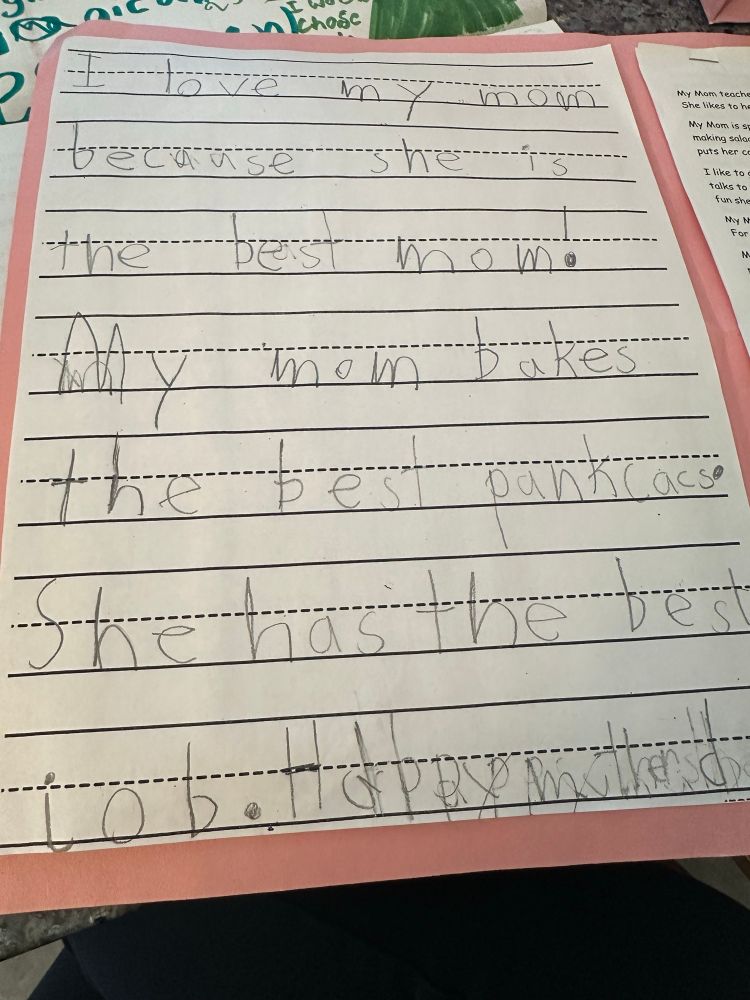 I would
chose
I love my mom
because she is
the best mom!
My mom bakes
the best pankcacs.
She has the best
job. Happy mother's
My Mom teache
She likes to he
My Mom is sp
making sala
puts her co
I like to
talks to
fun she
My M
For
M